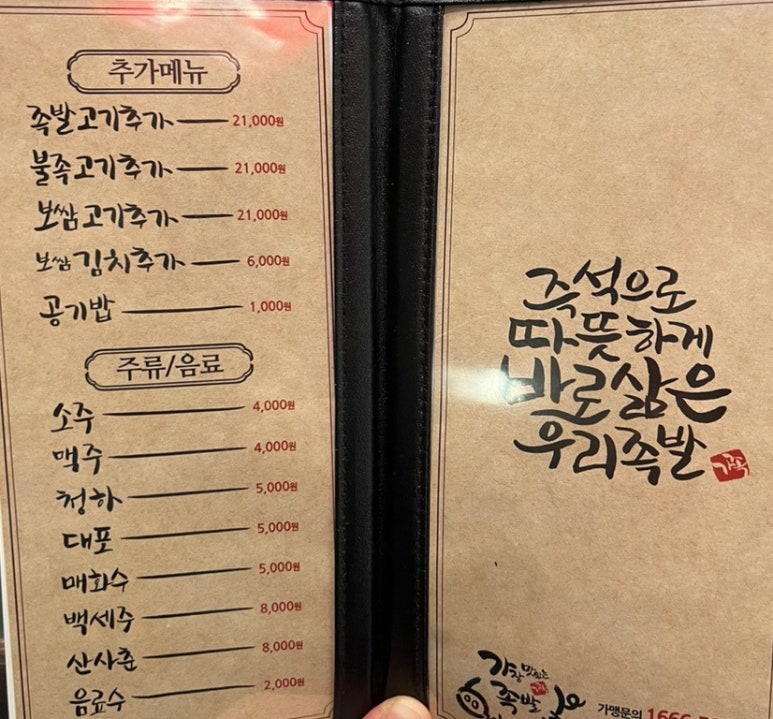 추가메뉴
족발고기추가 21,000원
불족고기추가 21,000원
보쌈고기추가 21,000원
보쌈김치추가 6,000원
공기밥 1,000원
주류/음료
소주 4,000원
맥주 4,000원
청하 5,000원
대포 5,000원
매화수 5,000원
백세주 8,000원
산사춘 8,000원
음료수 2,000원
즉석으로
따뜻하게
바로삶은
우리족발
가족
가장맛있는
족발
가맹문의 1666